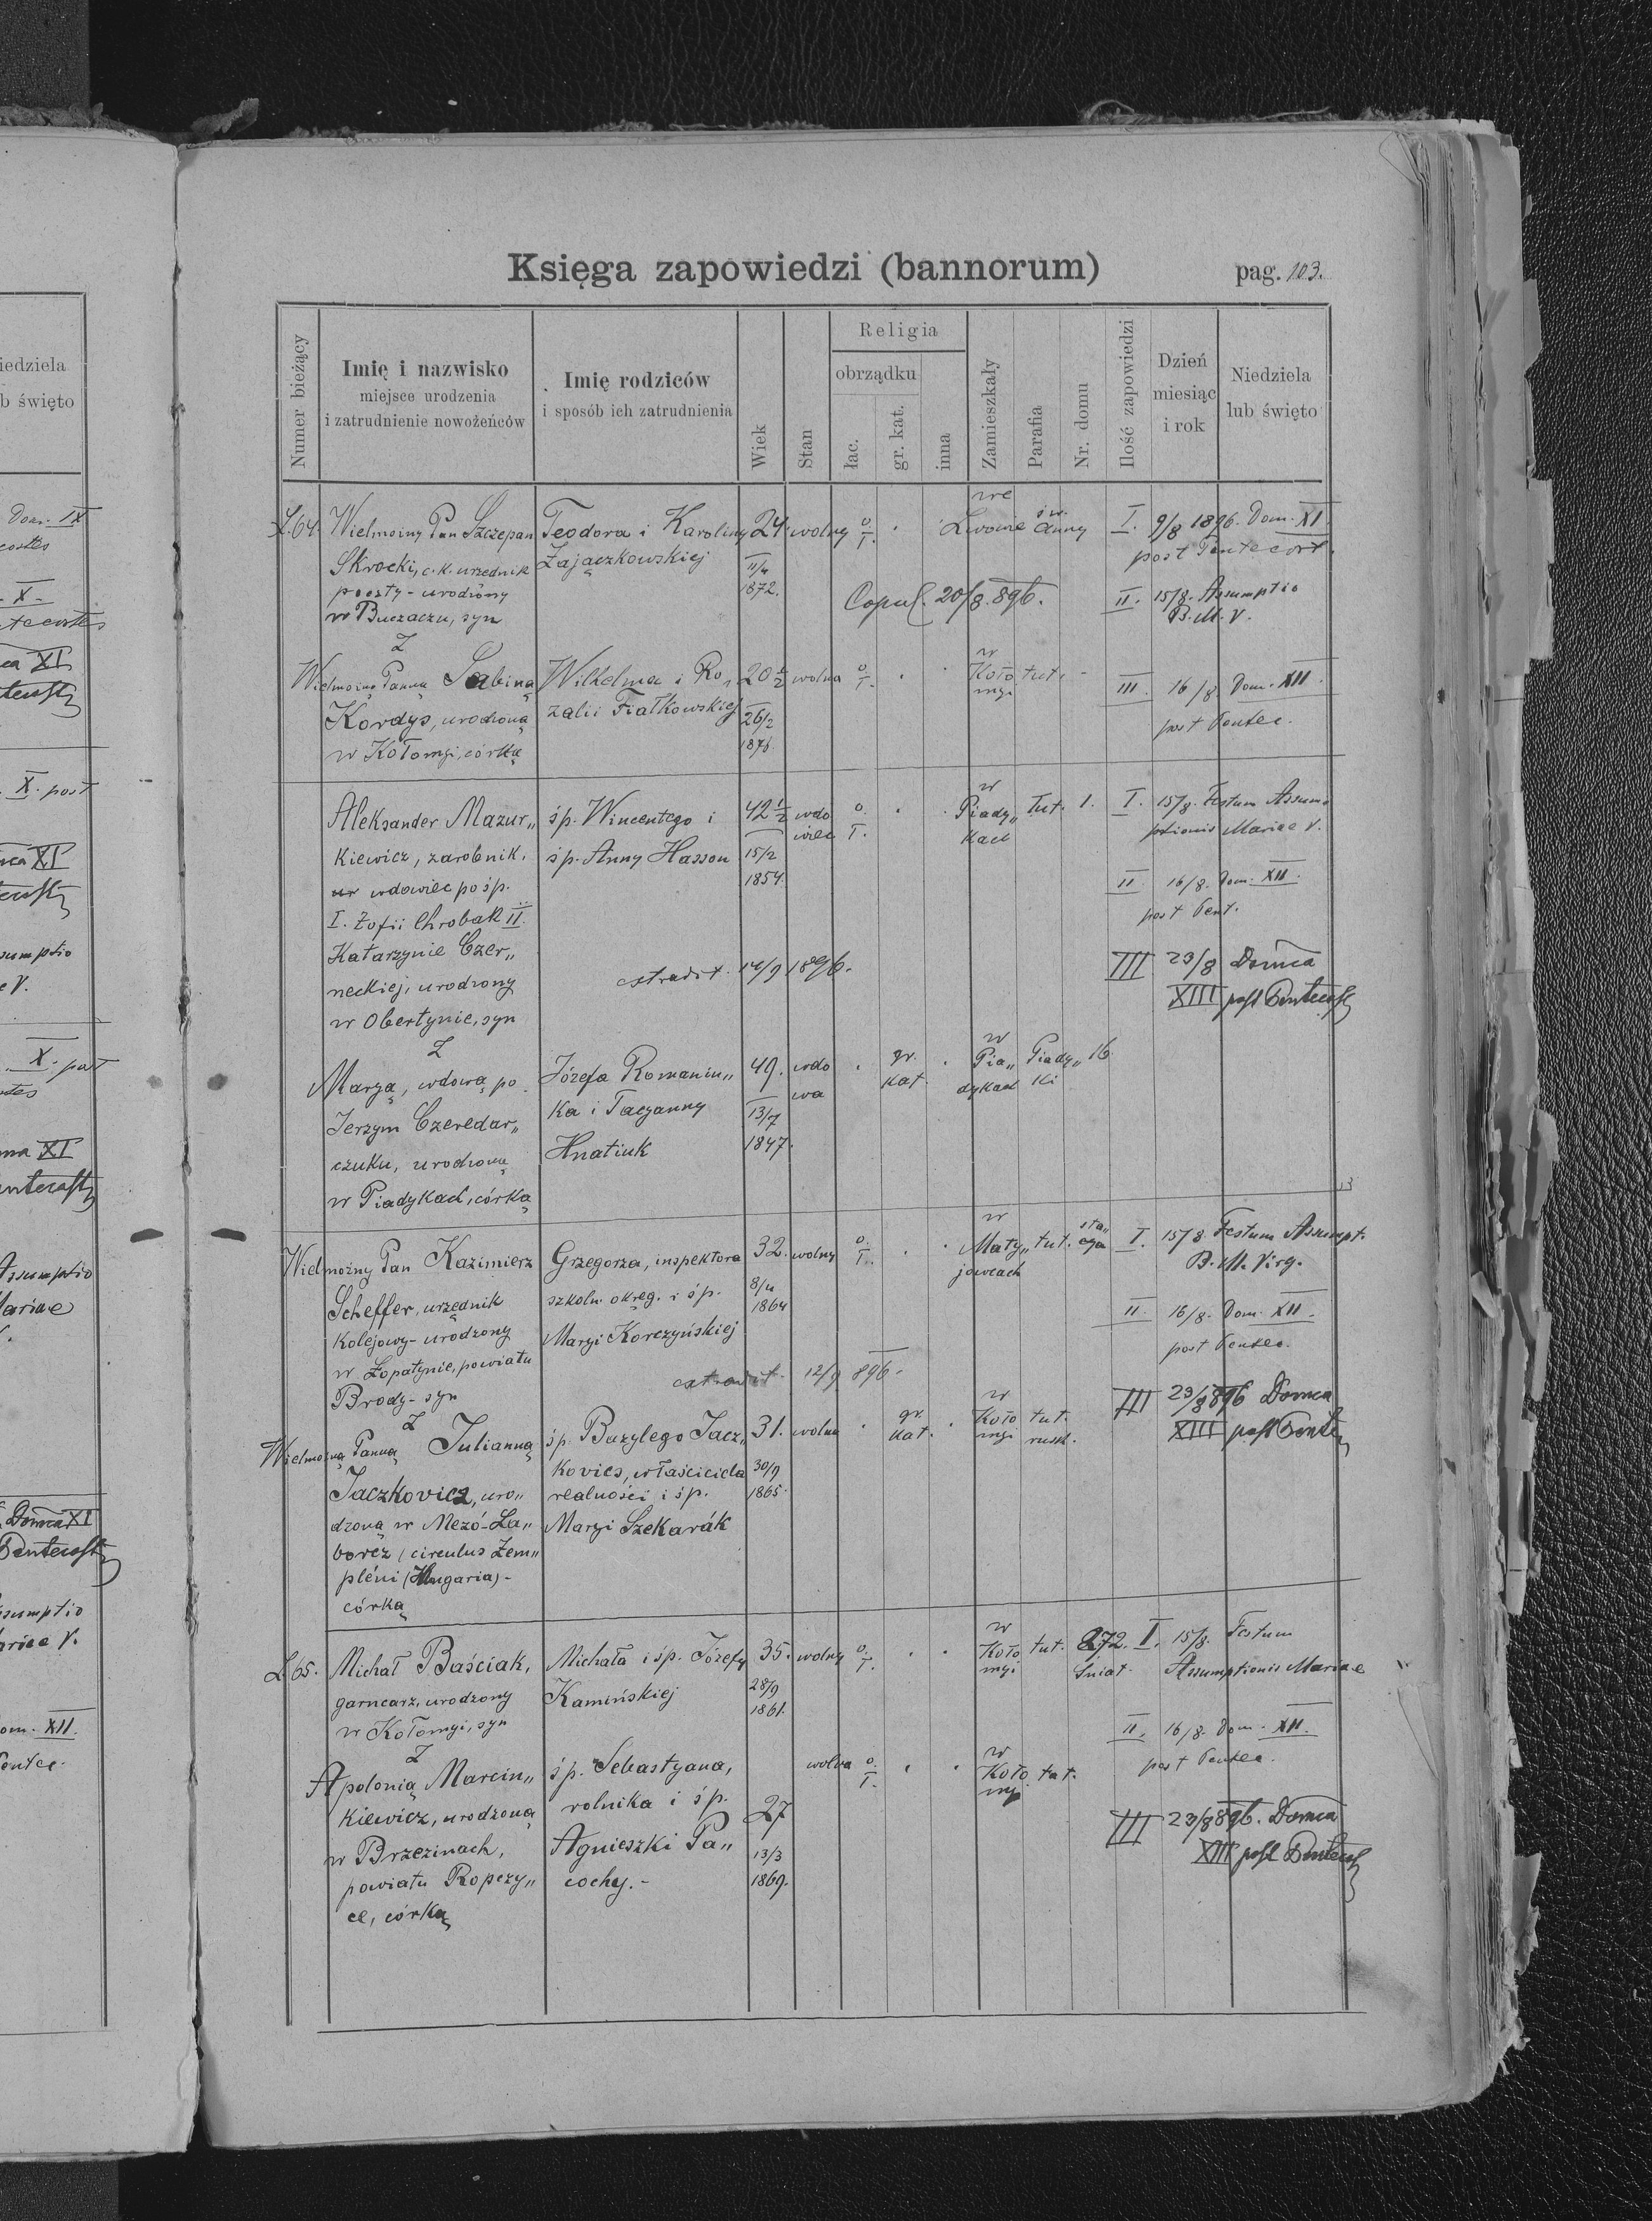 Księga zapowiedzi (bannorum)
pag. 103.
Numer bieżący
Imię i nazwisko
miejsce urodzenia
i zatrudnienie nowożeńców
Imię rodziców
i sposób ich zatrudnienia
Wiek
Stan
Religia
obrządku
łac.
gr. kat.
inna
Zamieszkały
Parafia
Nr. domu
Ilość zapowiedzi
Dzień
miesiąc
i rok
Niedziela
lub święto
L.64. Wielmożny Pan Szczepan
Skrocki, c. k. urzędnik
poczty - urodzony
w Buczaczu, syn
Teodora i Karoliny
Zajączkowskiej
24.
11/4
1872.
wolny
o. ł.
we
Lwowie
św. Anny
I. 9/8 1896. Dom. XI.
post Pentecost.
Copul. 20/8. 896.
II. 15/8. Assumptio
B. M. V.
Z
Wielmożną Panną Sabiną
Kordys, urodzoną
w Kołomyi, córką
Wilhelma i Ro„
zalii Fiałkowskiej
20 1/2
26/2
1876
wolna
o. ł.
w
Koło
myi
tut.
III. 16/8. Dom. XII.
post Pentec.
Aleksander Mazur„
kiewicz, zarobnik,
wdowiec po śp.
I. Zofii Chrobak II.
Katarzynie Czer„
neckiej, urodzony
w Obertynie, syn
śp. Wincentego i
śp. Anny Hasson
42 1/2
15/2
1854.
wdo
wiec
o. ł.
w
Piady„
kach
tut. 1.
I. 15/8. Festum Assum
ptionis Mariae V.
II. 16/8. Dom. XII.
post Pent.
extradit. 14/9 1896.
III 23/8 Domca
XIII post Pentecost
Z
Maryą, wdową po
Jerzym Czeredar„
czuku, urodzoną
w Piadykach, córką
Józefa Romaniu„
ka i Tacyanny
Hnatiuk
49.
13/7
1847.
wdo
wa
gr.
kat.
w
Pia„
dykach
Piady„
ki
16
Wielmożny Pan Kazimierz
Scheffer, urzędnik
kolejowy - urodzony
w Łopatynie, powiatu
Brody - syn
Grzegorza, inspektora
szkoln. okręg. i śp.
Maryi Korczyńskiej
32.
8/4
1864
wolny
o. ł.
w
Maty„
jowcach
tut.
sta„
cya
I. 15/8 Festum Assumpt.
B. M. Virg.
II. 16/8. Dom. XII.
post Pentec.
extradit. 12/9 896.
III 23/8 896 Domca
XIII post Pente
Z
Wielmożną Panną Julianną
Jaczkovicz, uro„
dzoną w Mezó-La„
borcz (circulus Zem„
pléni (Hungaria) -
córką
śp. Bazylego Jacz„
kovics, właściciela
realności i śp.
Maryi Szekarák
31.
30/9
1865.
wolna
gr.
kat.
w
Koło
myi
tut.
rusk.
L.65. Michał Baściak,
garncarz, urodzony
w Kołomyi, syn
Michała i śp. Józefy
Kamińskiej
35.
28/9
1861.
wolny
o. ł.
w
Koło
myi
tut. 272.
Śniat.
I. 15/8. Festum
Assumptionis Mariae
II. 16/8. Dom. XII.
post Pentec.
Z
Apolonią Marcin„
kiewicz, urodzoną
w Brzezinach,
powiatu Ropczy„
ce, córką
śp. Sebastyana,
rolnika i śp.
Agnieszki Pa„
cochy. -
27
13/3
1869.
wolna
o. ł.
w
Koło
myi
tut.
III 23/8 896. Domca
XIII post Pentecost